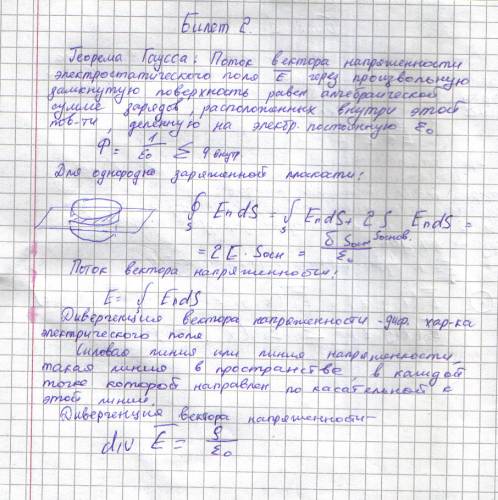 Билет 2.
Теорема Гаусса: Поток вектора напряженности
электростатического поля E через произвольную
замкнутую поверхность равен алгебраической
сумме зарядов, расположенных внутри этой
пов-ти, деленную на электр. постоянную ε₀
Ф = 1/ε₀ Σ q внутр
Для однородно заряженной плоскости:
∮_S E_n dS = ∫_S E_n dS + 2 ∫_Sоснов. E_n dS =
= 2E · Sосн = δ Sосн/ε₀
Поток вектора напряженности:
E = ∫ E_n dS
Дивергенция вектора напряженности - диф. хар-ка
электрического поля
Силовая линия или линия напряженности,
такая линия в пространстве в каждой
точке которой направлен по касательной к
этой линии.
Дивергенция вектора напряженности -
div E̅ = ρ/ε₀